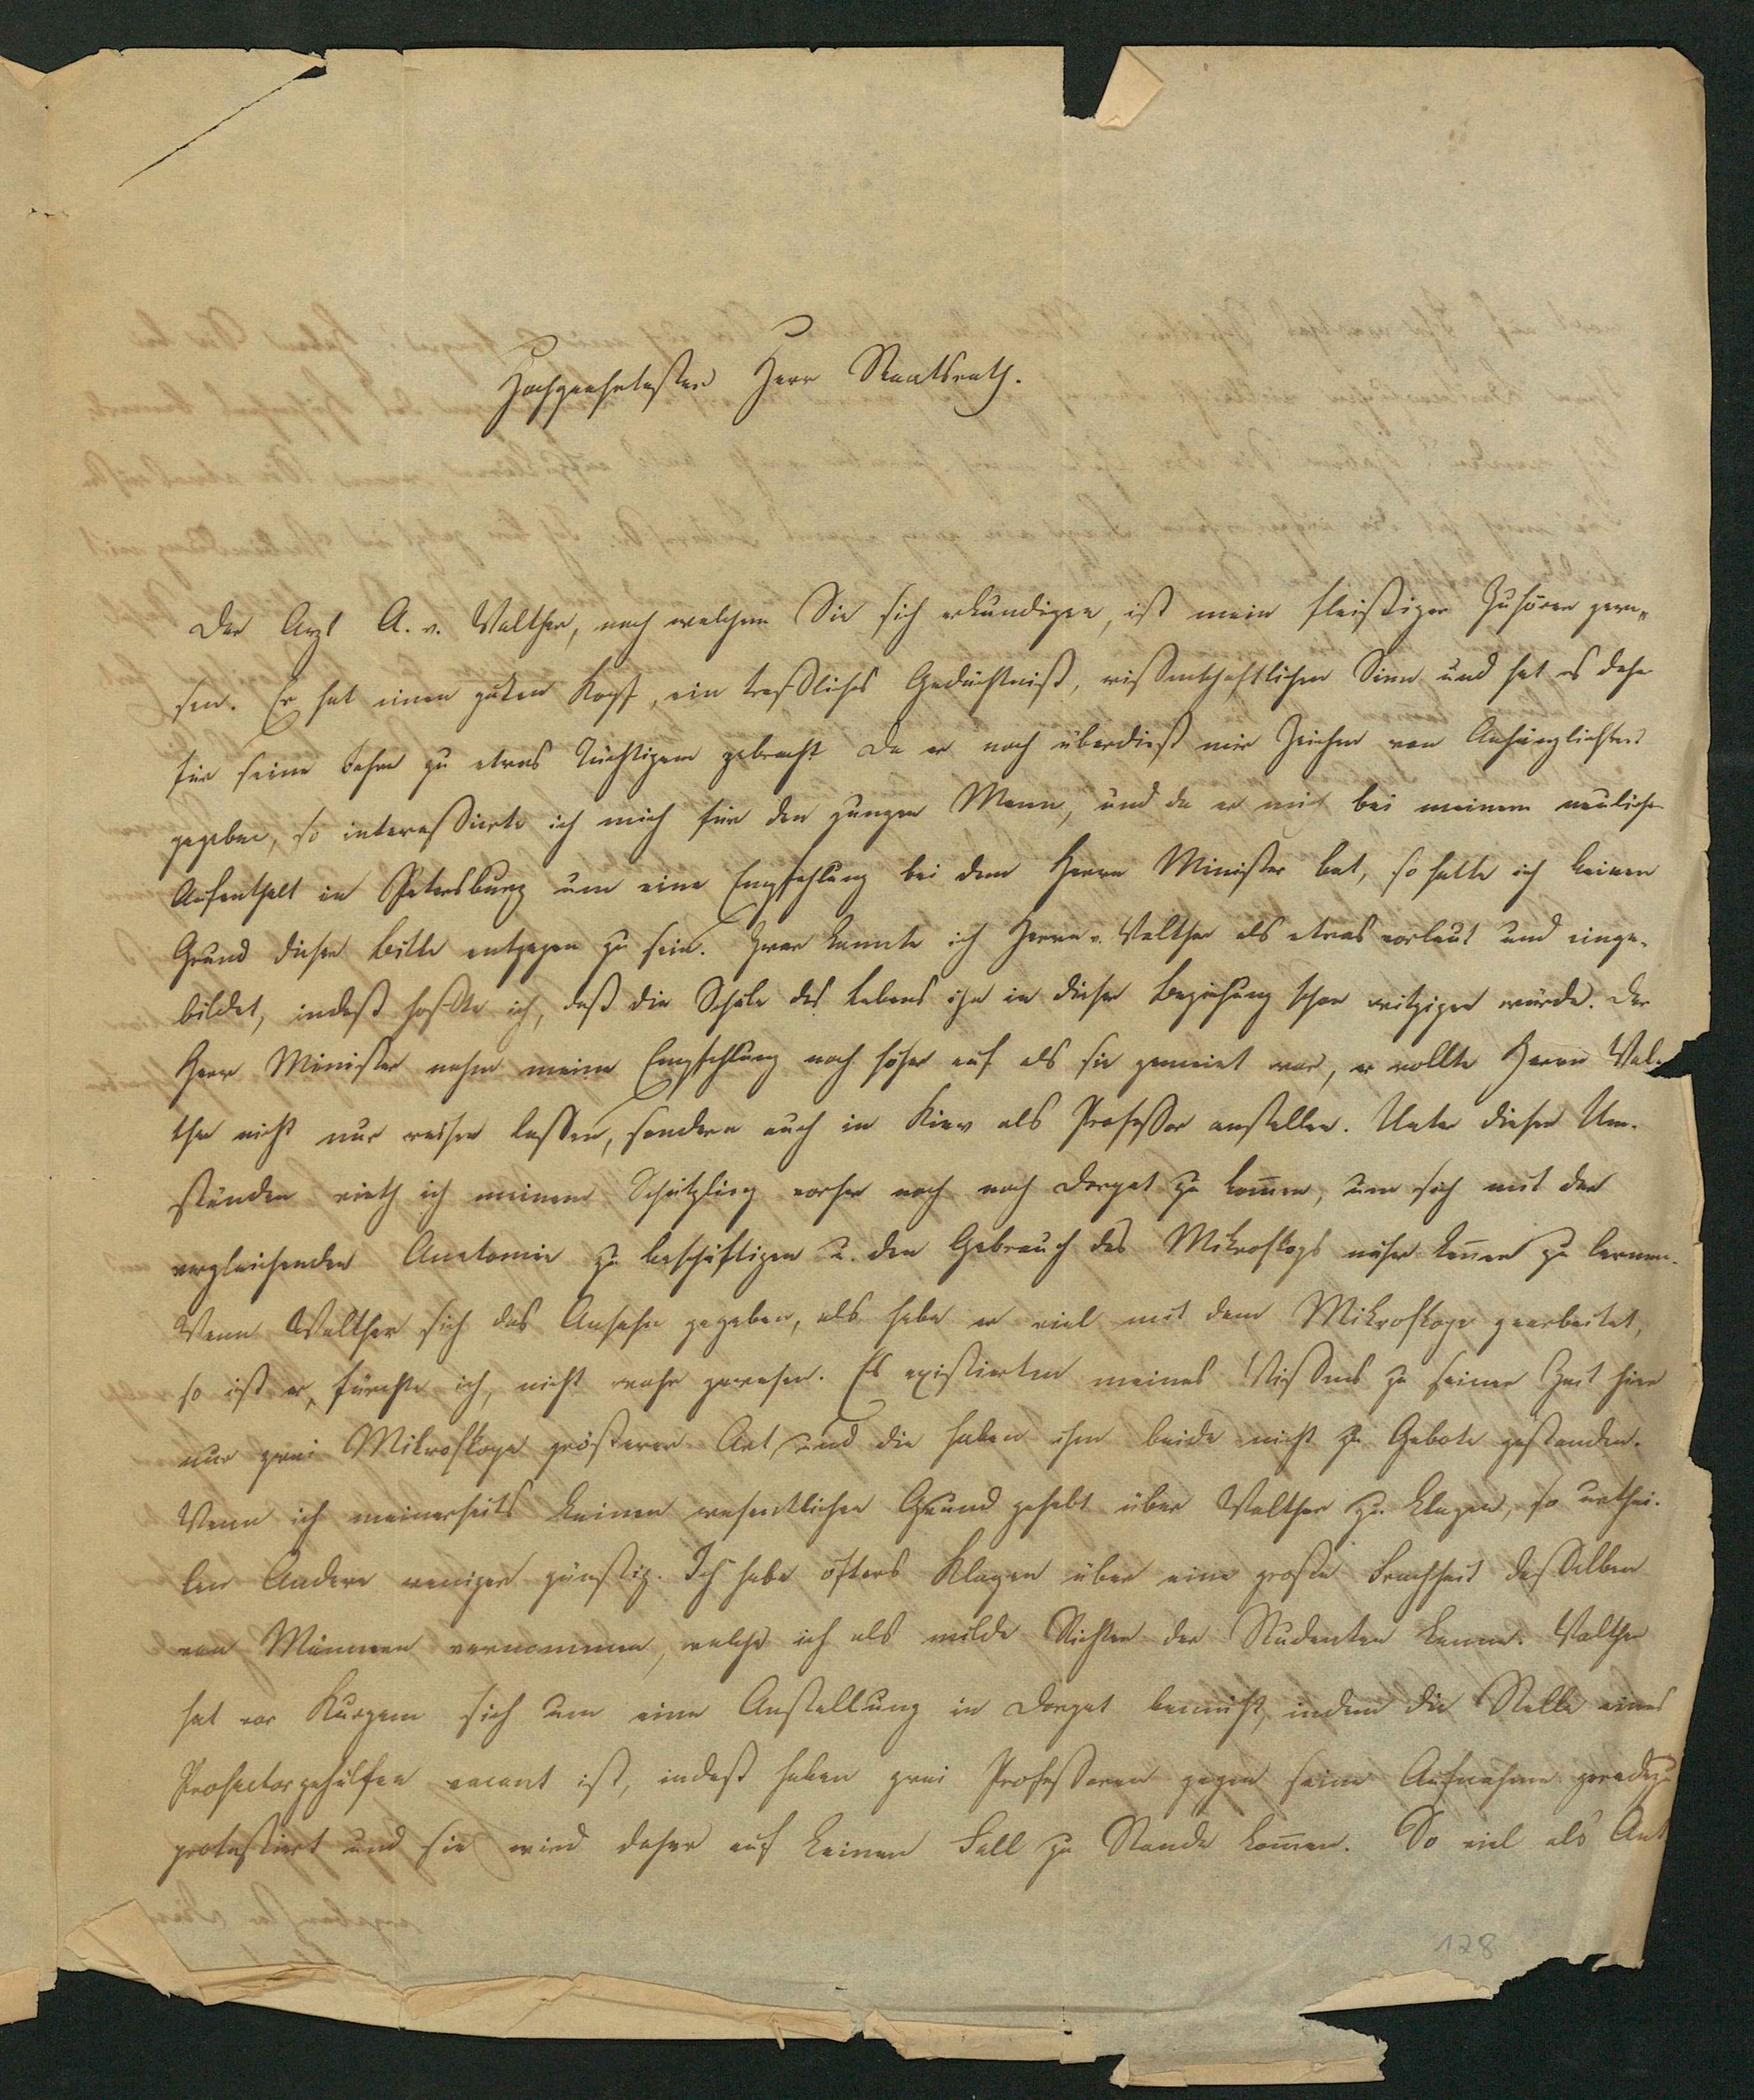 Hochgeehrtester Herr Staatsrath.
Der Arzt A. v. Walther, nach welchem Sie sich erkundigen, ist mein fleißiger Zuhörer gewe„
sen. Er hat einen guten Kopf, ein treffliches Gedächtniß, wissenschaftlichen Sinn und hat es daher
für seine Jahre zu etwas Tüchtigem gebracht. Da er noch überdieß mir Zeichen von Anhänglichkeit
gegeben, so interessierte ich mich für den jungen Mann, und da er mich bei meinem neulichen
Aufenthalt in Petersburg um eine Empfehlung bei dem Herrn Minister bat, so hatte ich keinen
Grund dieser Bitte entgegen zu sein. Zwar kannte ich Herrn v. Walther als etwas vorlaut und einge-
bildet, indeß hoffte ich, daß die Schule des Lebens ihn in dieser Beziehung schon witzigen würde. Der
Herr Minister nahm meine Empfehlung noch höher auf als sie gemeint war, er wollte Herrn Wal-
ther nicht nur reisen lassen, sondern auch in Kiew als Professor anstellen. Unter diesen Um-
ständen rieth ich meinem Schützling vorher noch nach Dorpat zu kom̅en, um sich mit der
vergleichenden Anatomie zu beschäftigen u. den Gebrauch des Mikroskops näher ken̅en zu lernen.
Wenn Walther sich das Ansehn gegeben, als habe er viel mit dem Mikroskope gearbeitet,
so ist er, fürchte ich, nicht wahr gewesen. Es existierten meines Wissens zu seiner Zeit hier
nur zwei Mikroskope größerer Art und die haben ihm beide nicht zu Gebote gestanden.
Wenn ich meinerseits keinen wesentlichen Grund gehabt über Walther zu klagen, so urthei-
len Andere weniger günstig. Ich habe öfters Klagen über eine große Frechheit desselben
von Männern vernommen, welche ich als milde Richter der Studenten kenne. Walther
hat vor Kurzem sich um eine Anstellung in Dorpat bemüht, indem die Stelle eines
Prosectorgehülfen vacant ist, indeß haben zwei Professoren gegen seine Aufnahme geradezu
protestiert und sie wird daher auf keinen Fall zu Stande kom̅en. So viel als Ant
128